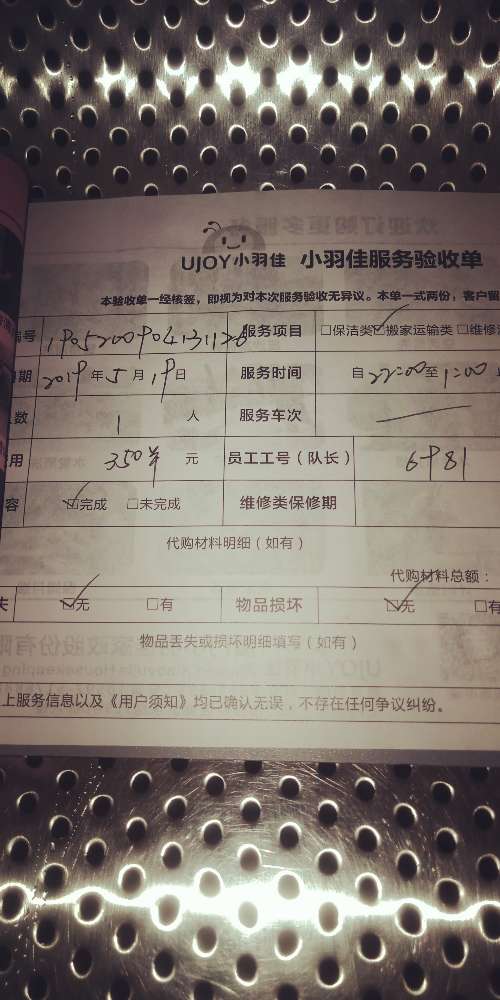 UJOY小羽佳 小羽佳服务验收单
本验收单一经核签，即视为对本次服务验收无异议。本单一式两份，客户留
编号 190520090413112 服务项目 □保洁类 ☑搬家运输类 □维修
期 2019年5月19日 服务时间 自22:00至1:00
数 1 人 服务车次
用 350 元 员工工号（队长） 6981
容 ☑完成 □未完成 维修类保修期
代购材料明细（如有）
代购材料总额：
失 ☑无 □有 物品损坏 ☑无 □有
物品丢失或损坏明细填写（如有）
上服务信息以及《用户须知》均已确认无误，不存在任何争议纠纷。